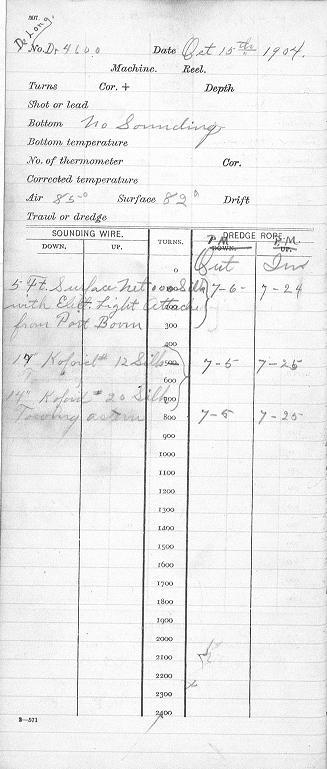 DeLong.
No. Dr 4600 Date Oct 15th 1904.
Machine. Reel.
Turns Cor. + Depth
Shot or lead
Bottom No Sounding
Bottom temperature
No. of thermometer Cor.
Corrected temperature
Air 85° Surface 82° Drift
Trawl or dredge
SOUNDING WIRE. TURNS. DREDGE ROPE.
DOWN. UP. P.M. DOWN. P.M. UP.
0 Out In
5 Ft. Surface Net 000 Silk 7-6- 7-24
with Elect. Light Attach 200
from Port Boom 300
400
17" Kofoid # 12 Silk 500 7-5 7-25
600
14" Kofoid # 20 Silk 700
Towing astern 800 7-5 7-25
900
1000
1100
1200
1300
1400
1500
1600
1700
1800
1900
2000
2100
2200
2300
2400
3—571